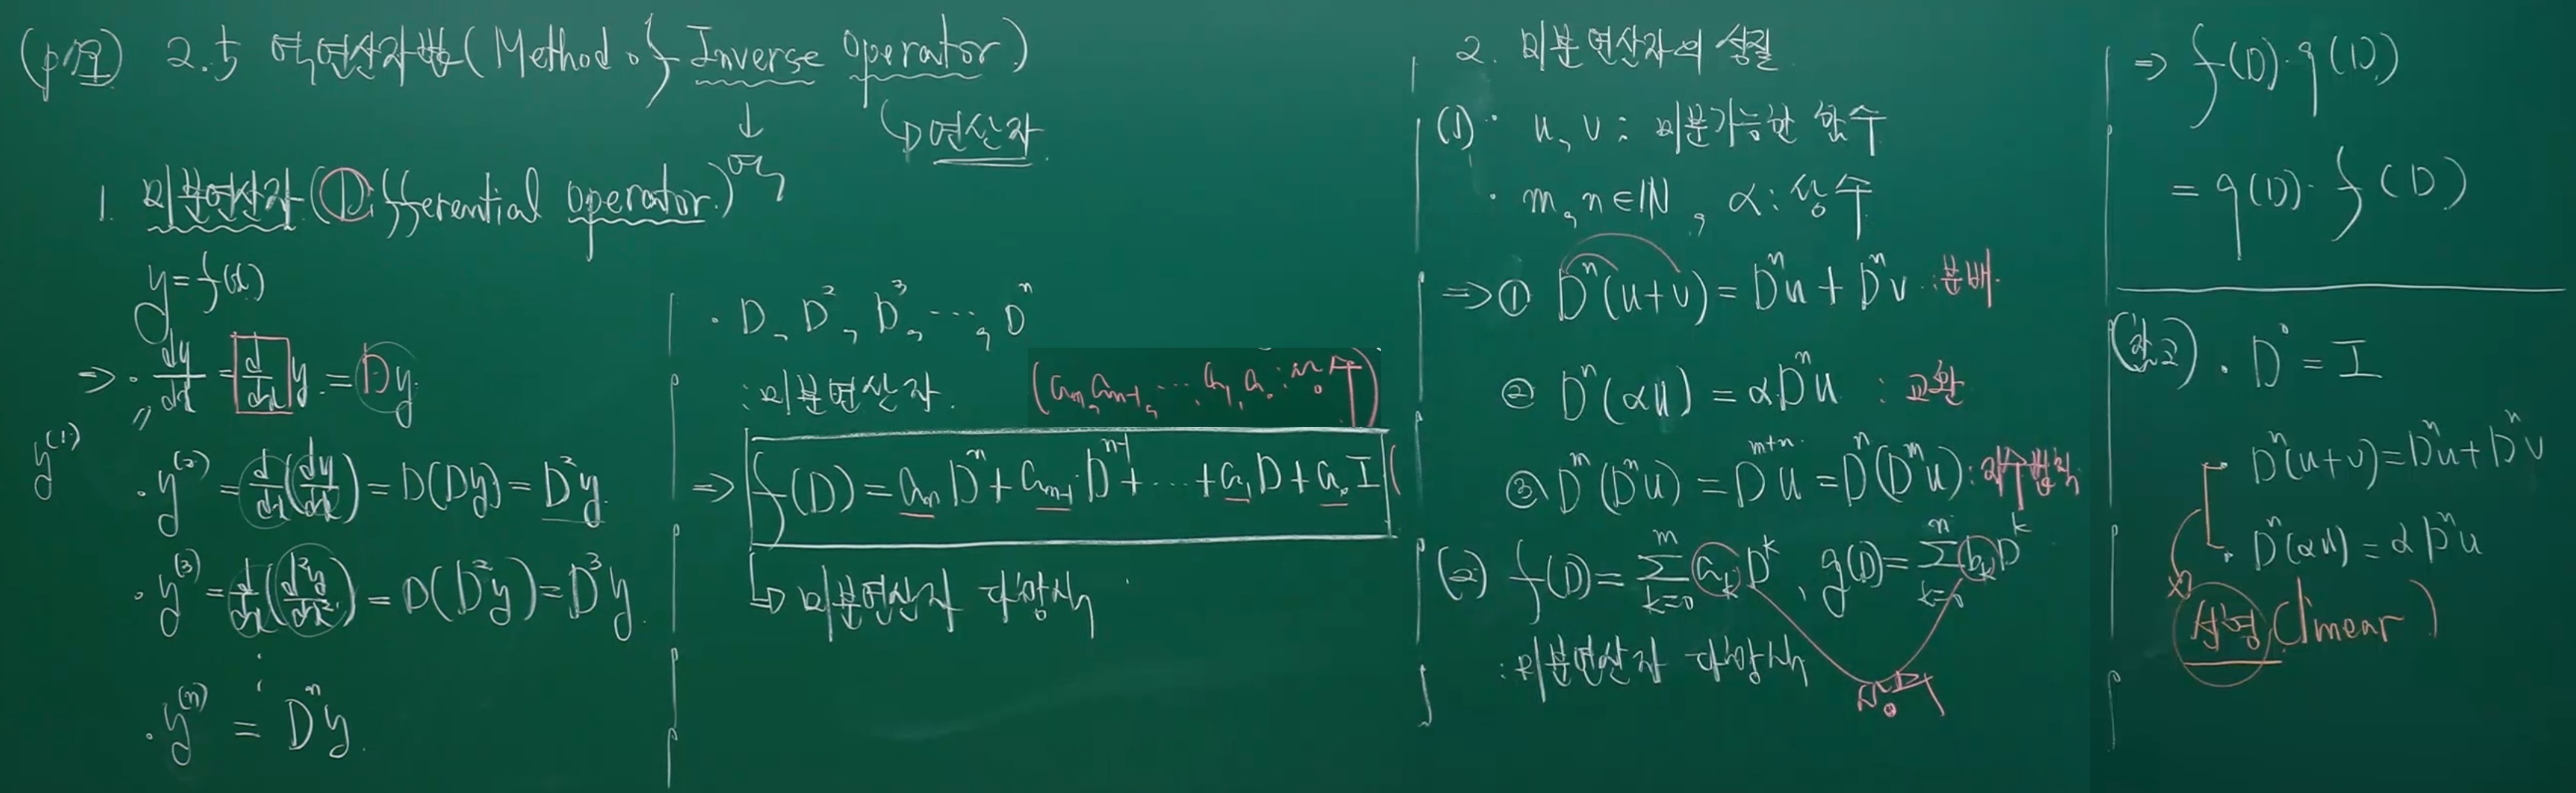 2.5 역연산자법(Method of Inverse Operator)
↓ 역
↳ 연산자
1. 미분연산자(Differential operator)
y=f(x)
⇒ · dy/dx = d/dx y = Dy
y⁽¹⁾
· y⁽²⁾ = d/dx(dy/dx) = D(Dy) = D²y
· y⁽³⁾ = d/dx(d²y/dx²) = D(D²y) = D³y
⋮
· y⁽ⁿ⁾ = Dⁿy
· D, D², D³, ⋯, Dⁿ
: 미분연산자. (aₙ, aₙ₋₁, ⋯, a₁, a₀ : 상수)
⇒ f(D) = aₙDⁿ + aₙ₋₁Dⁿ⁻¹ + ⋯ + a₁D + a₀I
↳ 미분연산자 다항식
2. 미분연산자의 성질
(1) · u, v : 미분가능한 함수
· m, n ∈ ℕ, α : 상수
⇒ ① Dⁿ(u+v) = Dⁿu + Dⁿv : 분배
② Dⁿ(αu) = αDⁿu : 교환
③ Dᵐ(Dⁿu) = Dᵐ⁺ⁿu = Dⁿ(Dᵐu) : 지수법칙
(2) f(D) = Σₖ₌₀ᵐ aₖDᵏ, g(D) = Σₖ₌₀ⁿ bₖDᵏ
: 미분연산자 다항식
상수
⇒ f(D)·g(D)
= g(D)·f(D)
(참고) · D⁰ = I
· Dⁿ(u+v) = Dⁿu + Dⁿv
· Dⁿ(αu) = αDⁿu
선형(linear)